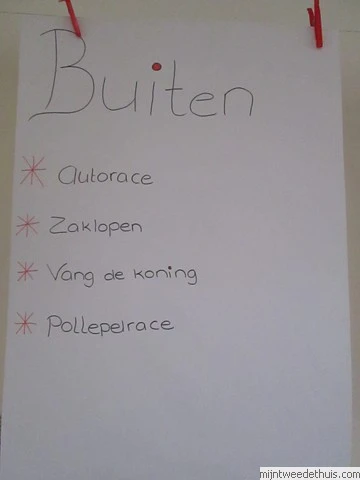 Buiten
Autorace
Zaklopen
Vang de koning
Pollepelrace
mijntweedethuis.com